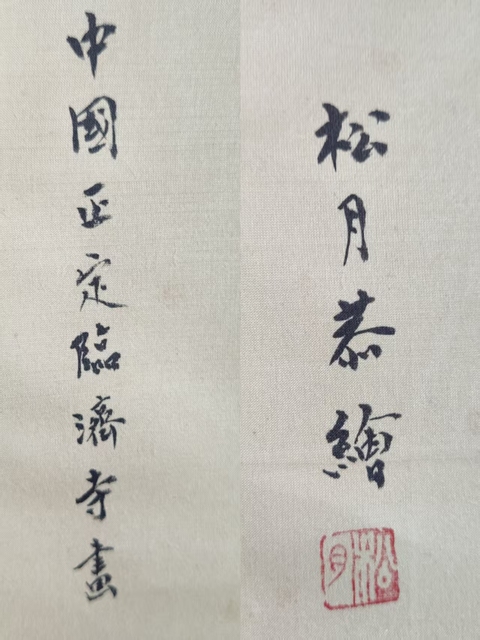 中國正定臨濟寺畫
松月恭繪
松月